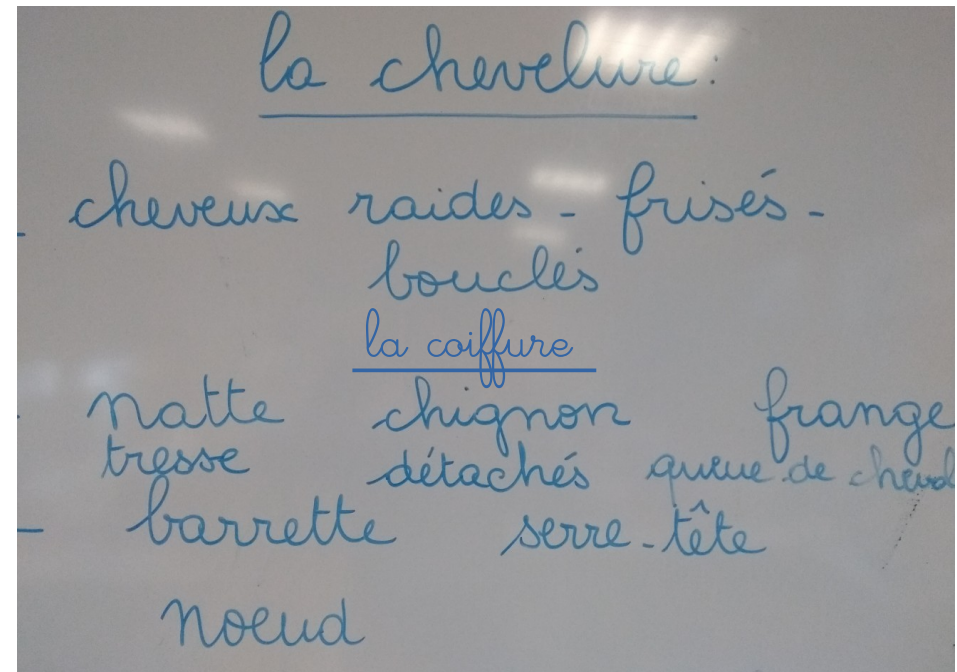 la chevelure:
- cheveux raides - frisés -
bouclés
la coiffure
- natte chignon frange
tresse détachés queue de cheval
- barrette serre-tête
noeud